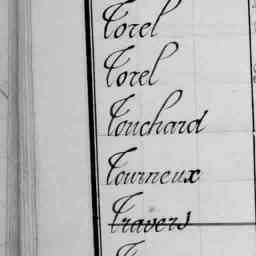 Torel
Torel
Touchard
Tourneux
Travers